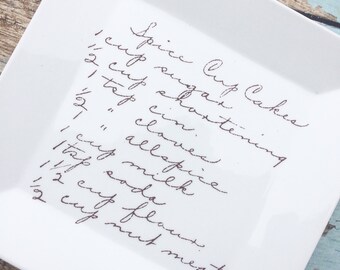 Spice Cup Cakes
1 cup sugar
1/2 cup shortening
1 tsp cin.
1/2 " cloves
" allspice
1 cup milk
1 tsp soda
1 1/2 cup flour
1/2 cup nut meat